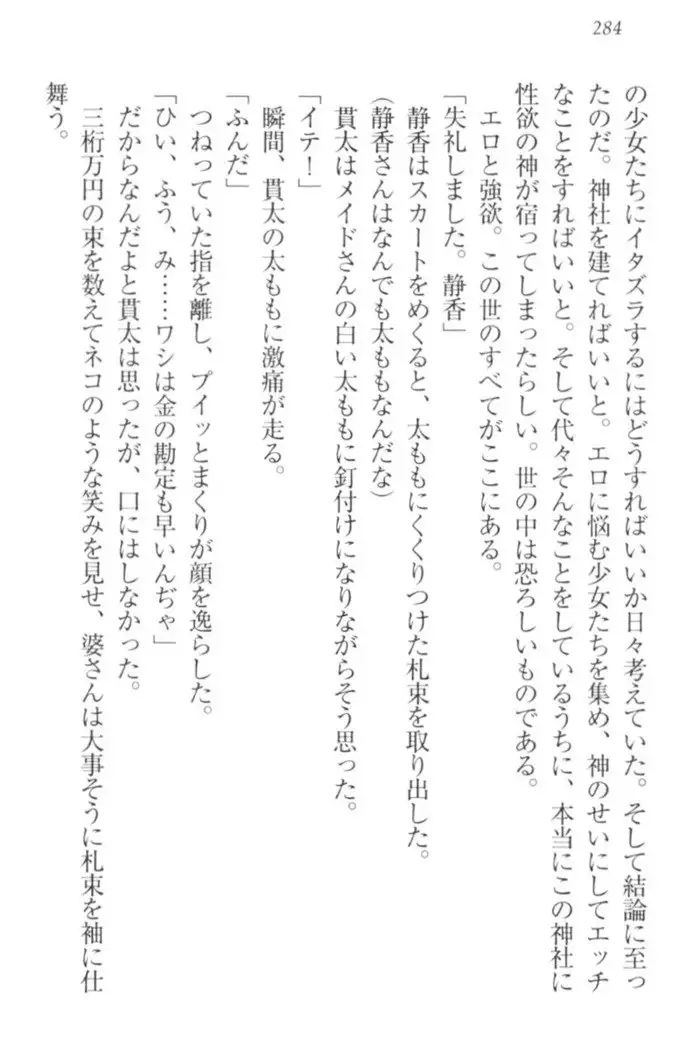 284
の少女たちにイタズラするにはどうすればいいか日々考えていた。そして結論に至っ
たのだ。神社を建てればいいと。エロに悩む少女たちを集め、神のせいにしてエッチ
なことをすればいいと。そして代々そんなことをしているうちに、本当にこの神社に
性欲の神が宿ってしまったらしい。世の中は恐ろしいものである。
エロと強欲。この世のすべてがここにある。
「失礼しました。静香」
静香はスカートをめくると、太ももにくくりつけた札束を取り出した。
(静香さんはなんでも太ももなんだな)
貫太はメイドさんの白い太ももに釘付けになりながらそう思った。
「イテ！」
瞬間、貫太の太ももに激痛が走る。
「ふんだ」
つねっていた指を離し、プイッとまくりが顔を逸らした。
「ひい、ふう、み……ワシは金の勘定も早いんぢゃ」
だからなんだよと貫太は思ったが、口にはしなかった。
三桁万円の束を数えてネコのような笑みを見せ、婆さんは大事そうに札束を袖に仕
舞う。